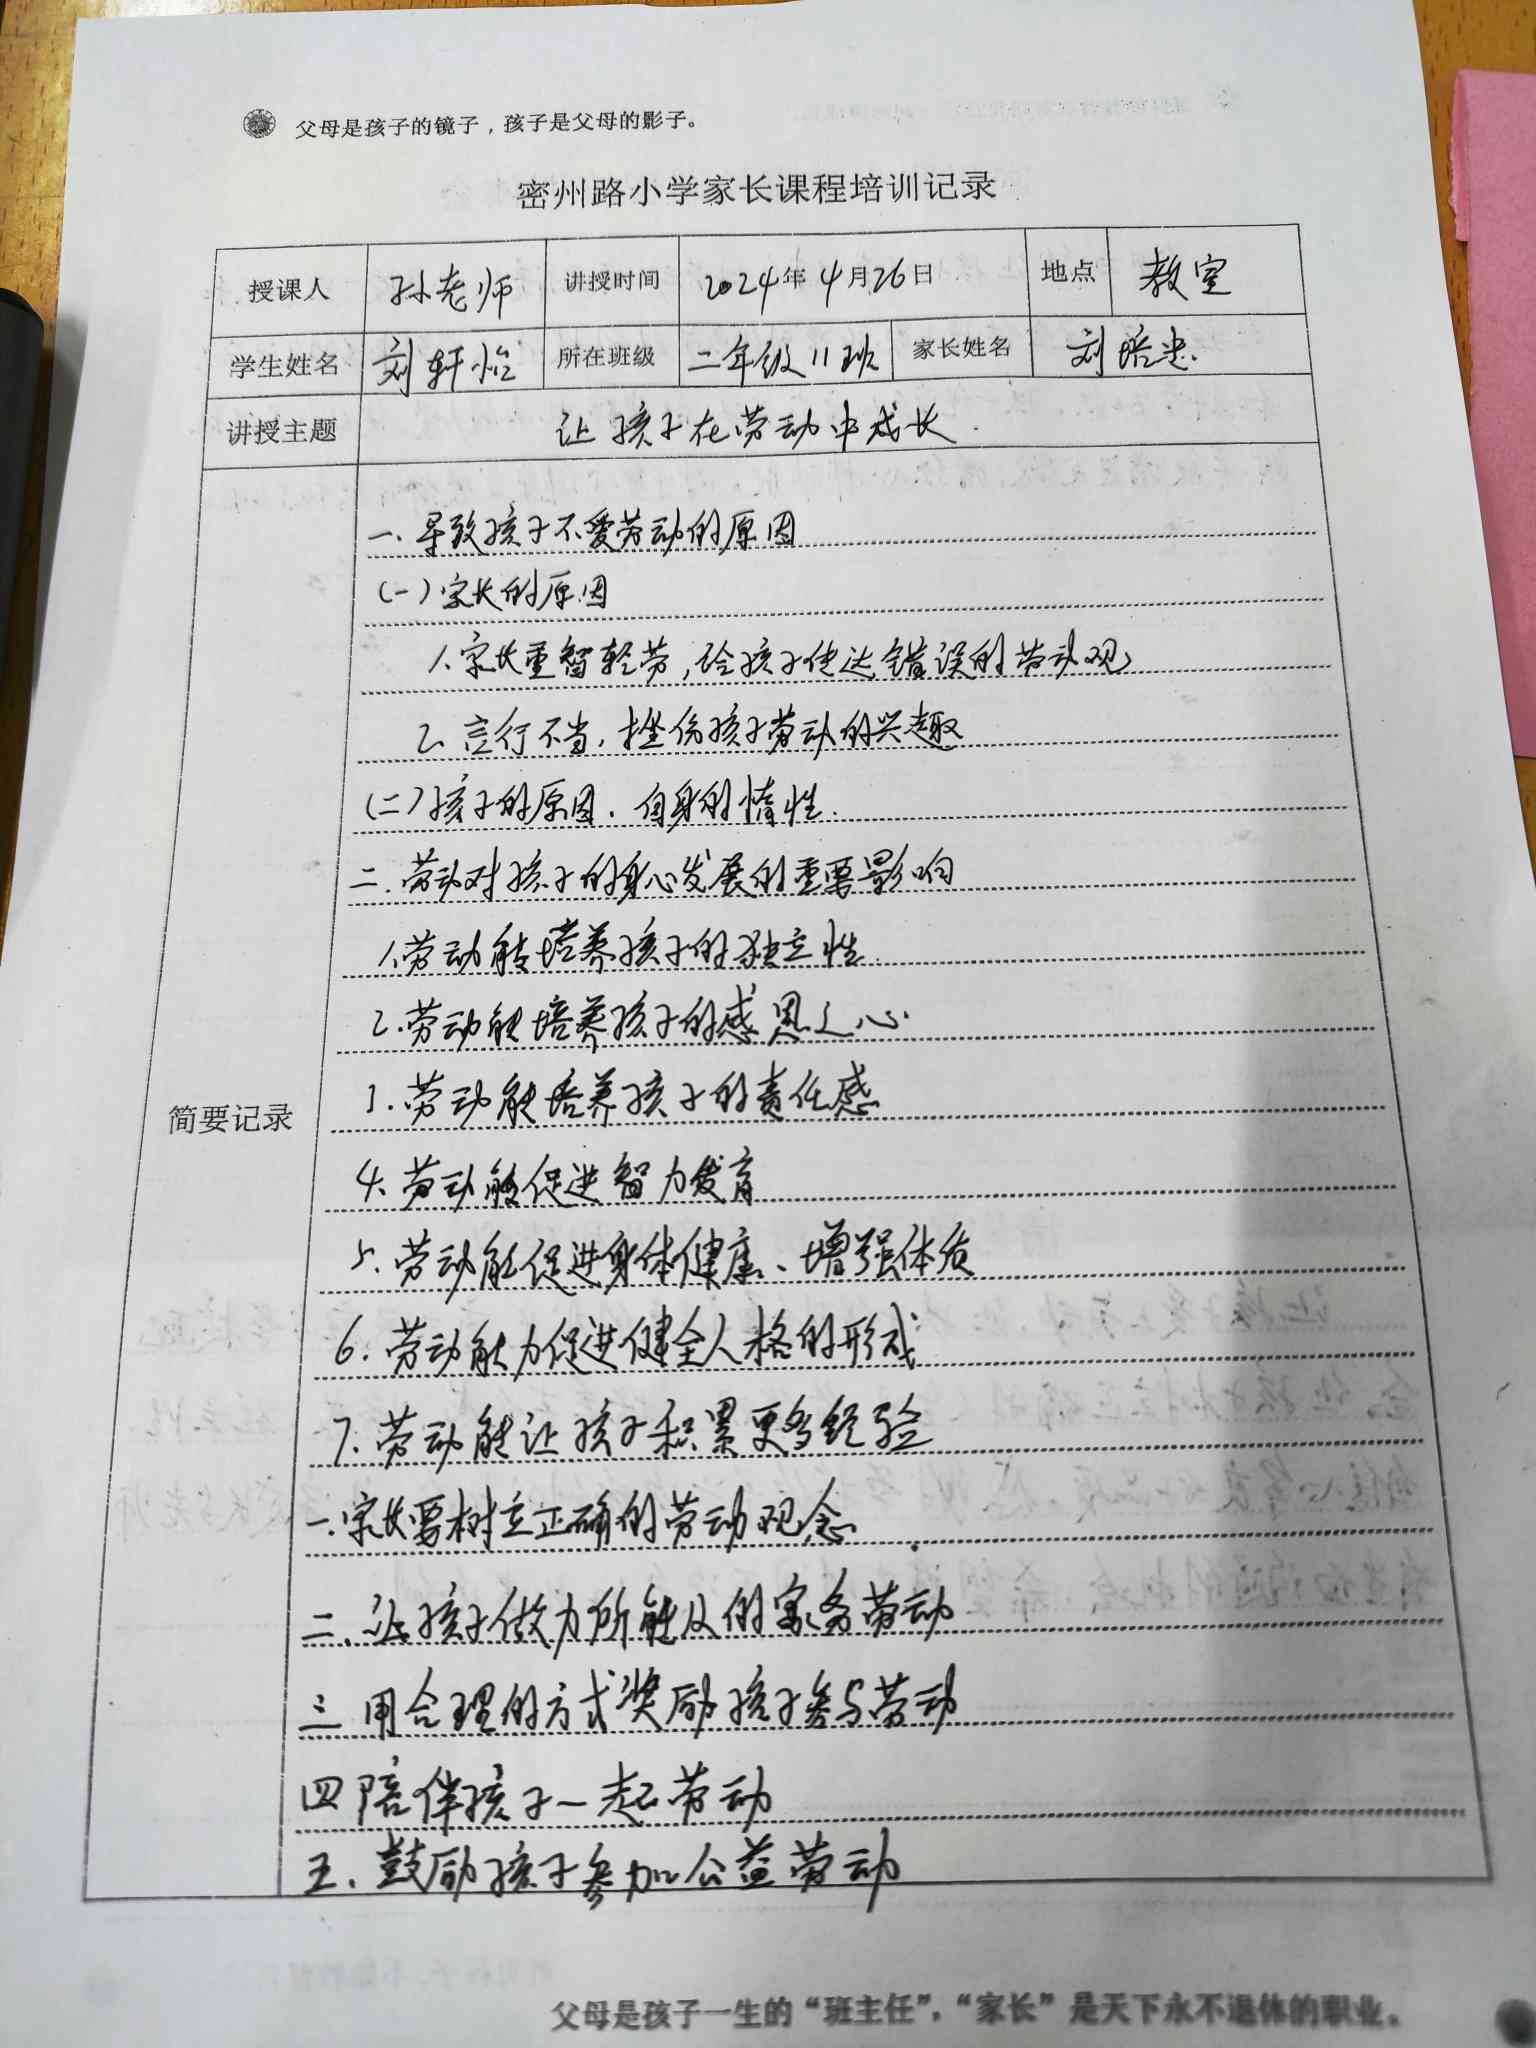 父母是孩子的镜子，孩子是父母的影子。
密州路小学家长课程培训记录
授课人 孙老师 讲授时间 2024年4月26日 地点 教室
学生姓名 刘轩怡 所在班级 二年级11班 家长姓名 刘培忠
讲授主题 让孩子在劳动中成长
一、导致孩子不爱劳动的原因
(一)家长的原因
1、家长重智轻劳,给孩子传达错误的劳动观
2、言行不当,挫伤孩子劳动的兴趣
(二)孩子的原因.自身的惰性.
二.劳动对孩子的身心发展的重要影响
1.劳动能培养孩子的独立性
2.劳动能培养孩子的感恩之心
3.劳动能培养孩子的责任感
简要记录
4、劳动能促进智力发育
5、劳动能促进身体健康、增强体质
6.劳动能力促进健全人格的形成
7.劳动能让孩子积累更多经验
一.家长要树立正确的劳动观念
二、让孩子做力所能及的家务劳动
三 用合理的方式奖励孩子参与劳动
四 陪伴孩子一起劳动
五.鼓励孩子参加公益劳动
父母是孩子一生的“班主任”，“家长”是天下永不退休的职业。